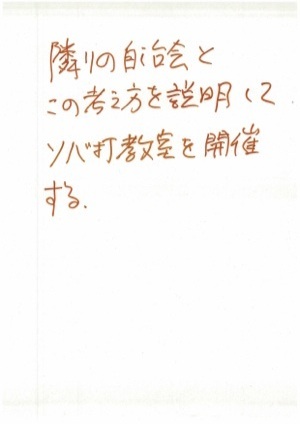 隣りの自治会と
この考え方を説明して
ソバ打教室を開催
する.